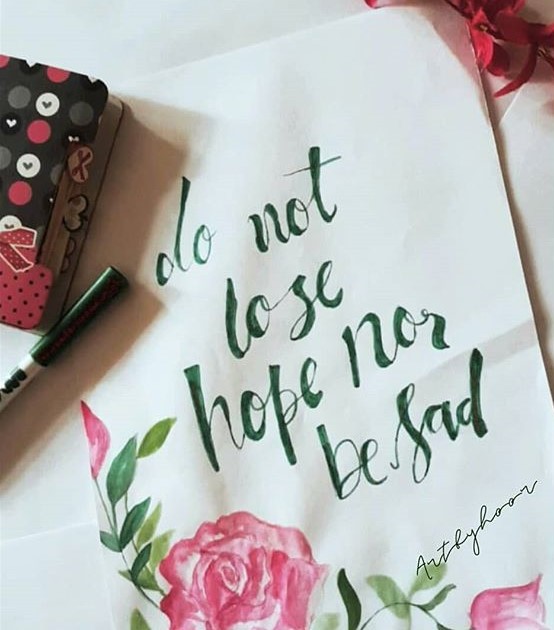 do not
lose
hope nor
be sad
Artbyhoor